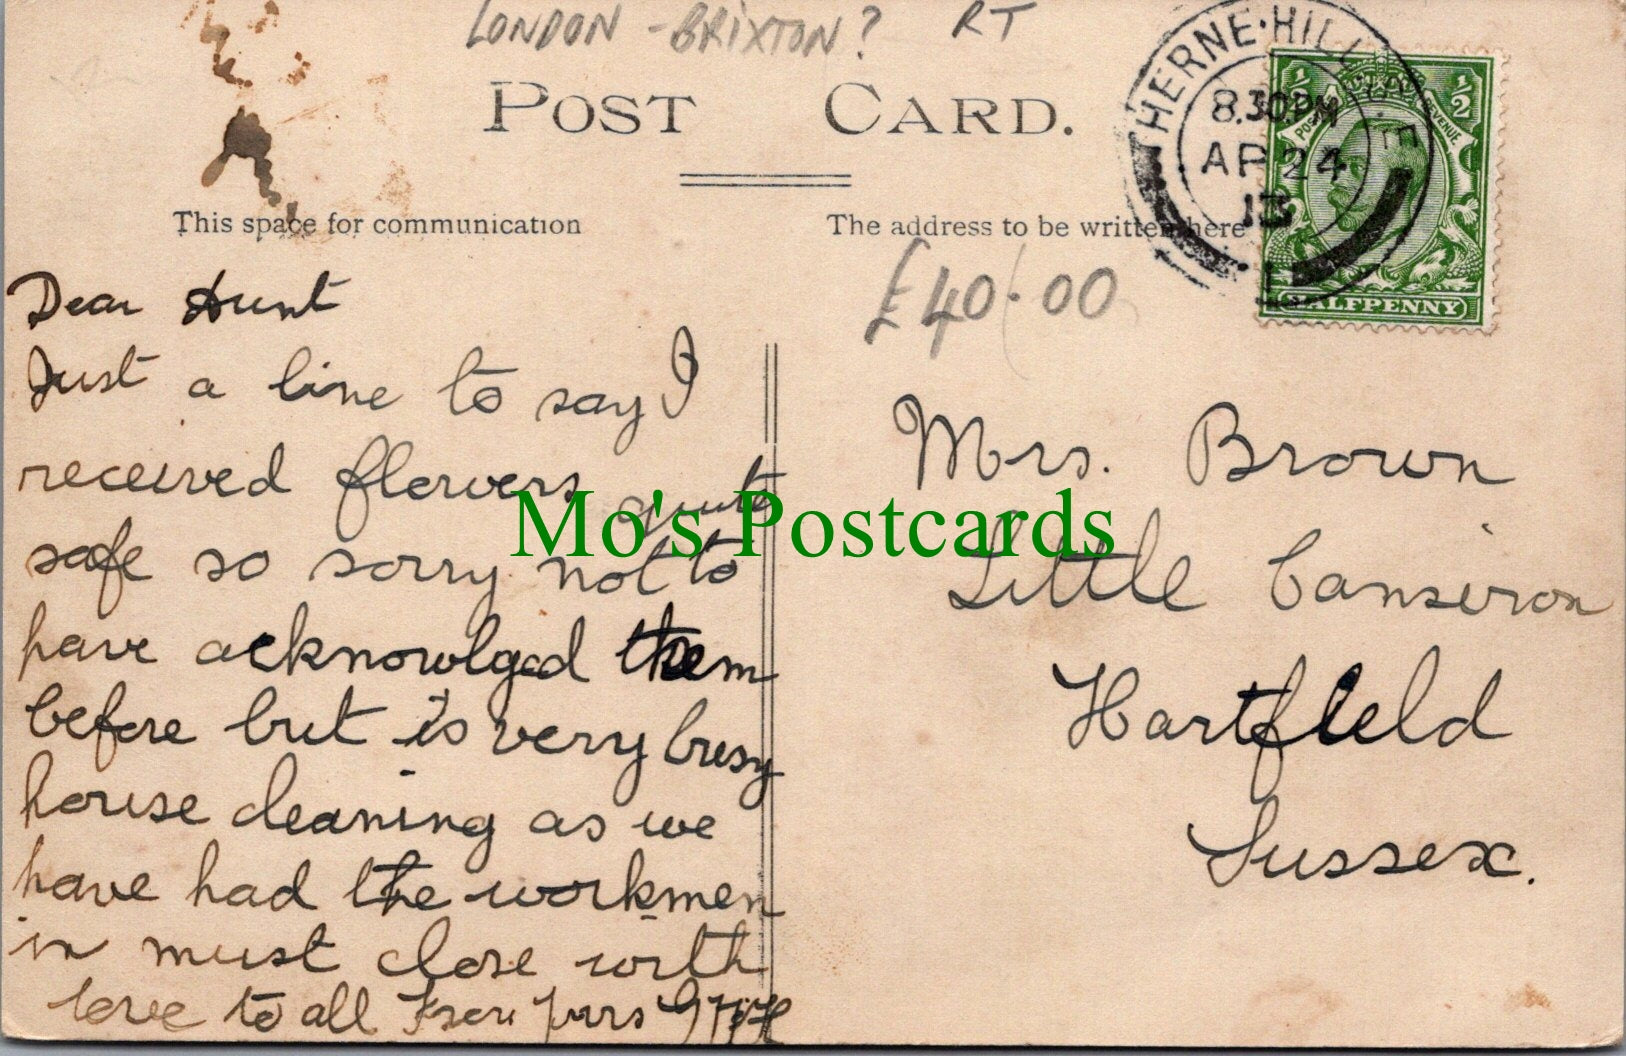 LONDON - BRIXTON? RT
POST CARD.
HERNE·HILL
8.30PM
AP 24
13
½ ½
POSTAGE REVENUE
HALFPENNY
This space for communication
The address to be written here
£40.00
Dear Aunt
Just a line to say I
received flowers quite
safe so sorry not to
have acknowlged them
before but is very busy
house cleaning as we
have had the workmen
in must close with
love to all From yours
Mrs. Brown
Little Cansiron
Hartfield
Sussex.
Mo's Postcards